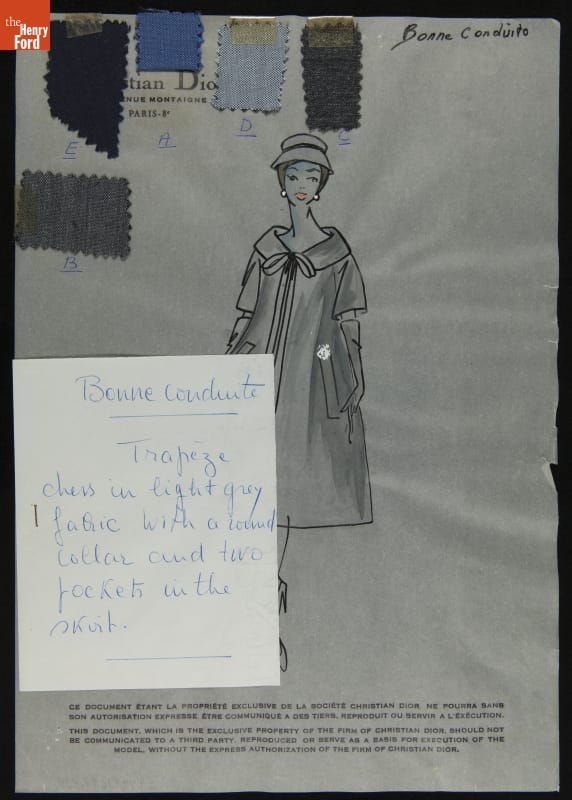 the
Henry
Ford
Bonne Conduite
stian Dio
ENUE MONTAIGNE
PARIS-8e
E
A
D
C
B
Bonne Conduite
Trapèze
dress in light grey
fabric with a round
collar and two
pockets in the
skirt.
CE DOCUMENT ÉTANT LA PROPRIÉTÉ EXCLUSIVE DE LA SOCIÉTÉ CHRISTIAN DIOR, NE POURRA SANS
SON AUTORISATION EXPRESSE ÊTRE COMMUNIQUÉ A DES TIERS, REPRODUIT OU SERVIR A L'EXÉCUTION.
THIS DOCUMENT, WHICH IS THE EXCLUSIVE PROPERTY OF THE FIRM OF CHRISTIAN DIOR, SHOULD NOT
BE COMMUNICATED TO A THIRD PARTY, REPRODUCED OR SERVE AS A BASIS FOR EXECUTION OF THE
MODEL, WITHOUT THE EXPRESS AUTHORIZATION OF THE FIRM OF CHRISTIAN DIOR.